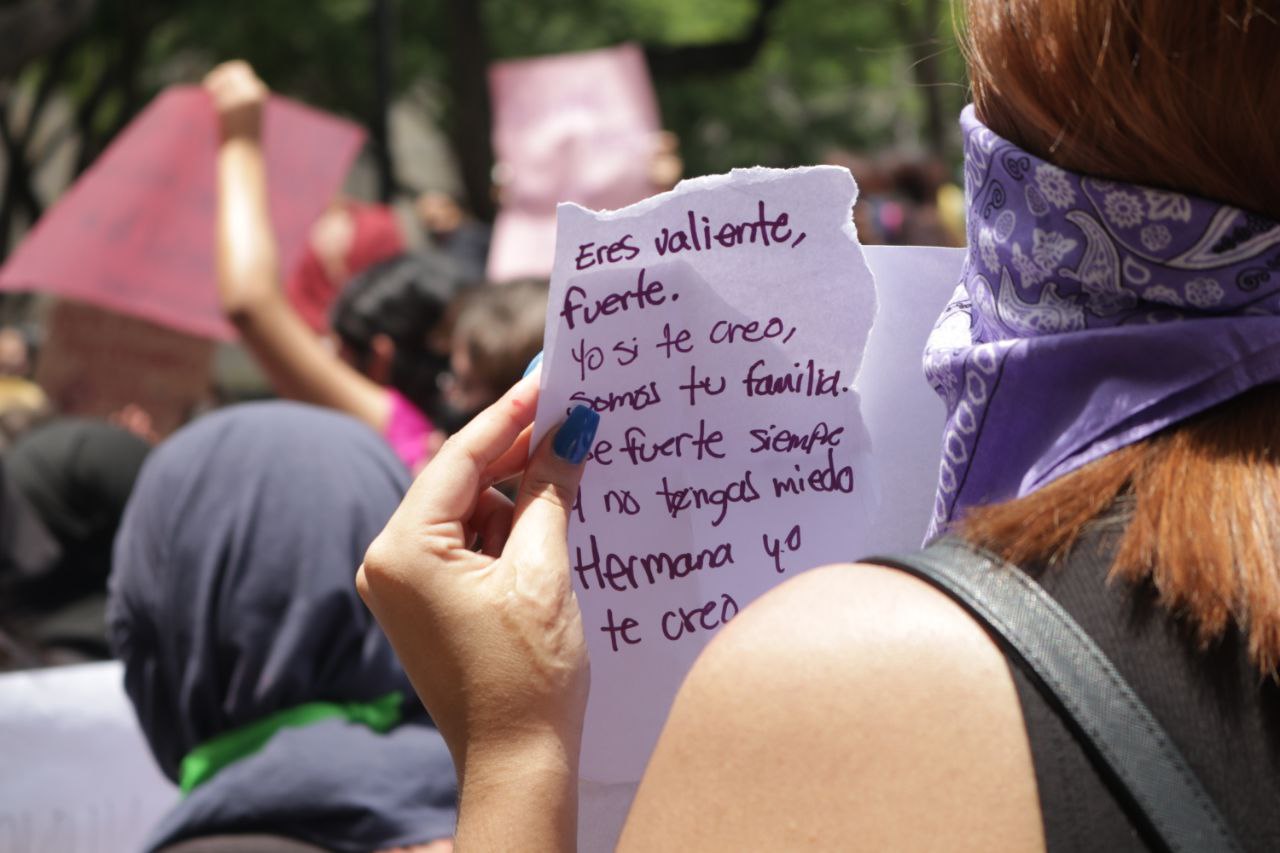 Eres valiente,
fuerte.
Yo si te creo,
somos tu familia.
se fuerte siempre
y no tengas miedo
Hermana yo
te creo